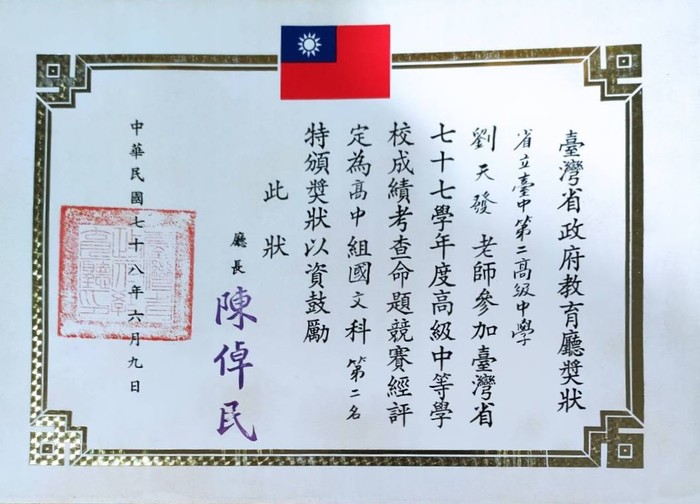 臺灣省政府教育廳獎狀
省立臺中第二高級中學
劉天發老師參加臺灣省
七十七學年度高級中等學
校成績考查命題競賽經評
定為高中組國文科第二名
特頒獎狀以資鼓勵
此狀
廳長 陳倬民
中華民國七十八年六月九日